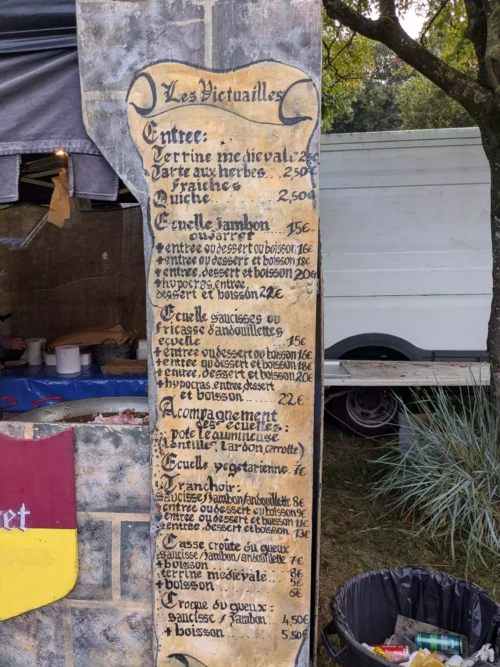 Les Victuailles
Entree:
Terrine medievale 2,50€
Tarte aux herbes... 2,50€
Fraiches
Quiche 2,50€
Ecuelle Jambon 15€
ou Jarret
+ entree ou dessert ou boisson 16€
+ entree ou dessert et boisson 18€
+ entree, dessert et boisson 20€
+ hypocras, entree,
dessert et boisson 22€
Ecuelle saucisses ou
fricasse d'andouillettes
ecuelle 15€
+ entree ou dessert ou boisson 16€
+ entree ou dessert et boisson 18€
+ entree, dessert et boisson 20€
+ hypocras, entree, dessert
et boisson 22€
Acompagnement
des ecuelles:
pote Leaumineuse
(Lentilles, Lardon, carrotte)
Ecuelle vegetarienne 7€
Tranchoir:
saucisse/Jambon/andouillette 8€
+ entree ou dessert ou boisson 9€
+ entree ou dessert et boisson 11€
+ entree, dessert et boisson 13€
Casse croûte du gueux
saucisse/Jambon/andouillette 7€
+ boisson 8€
terrine medievale... 5€
+ boisson 6€
Croque du gueux:
saucisse / Jambon 4,50€
+ boisson 5,50€
et